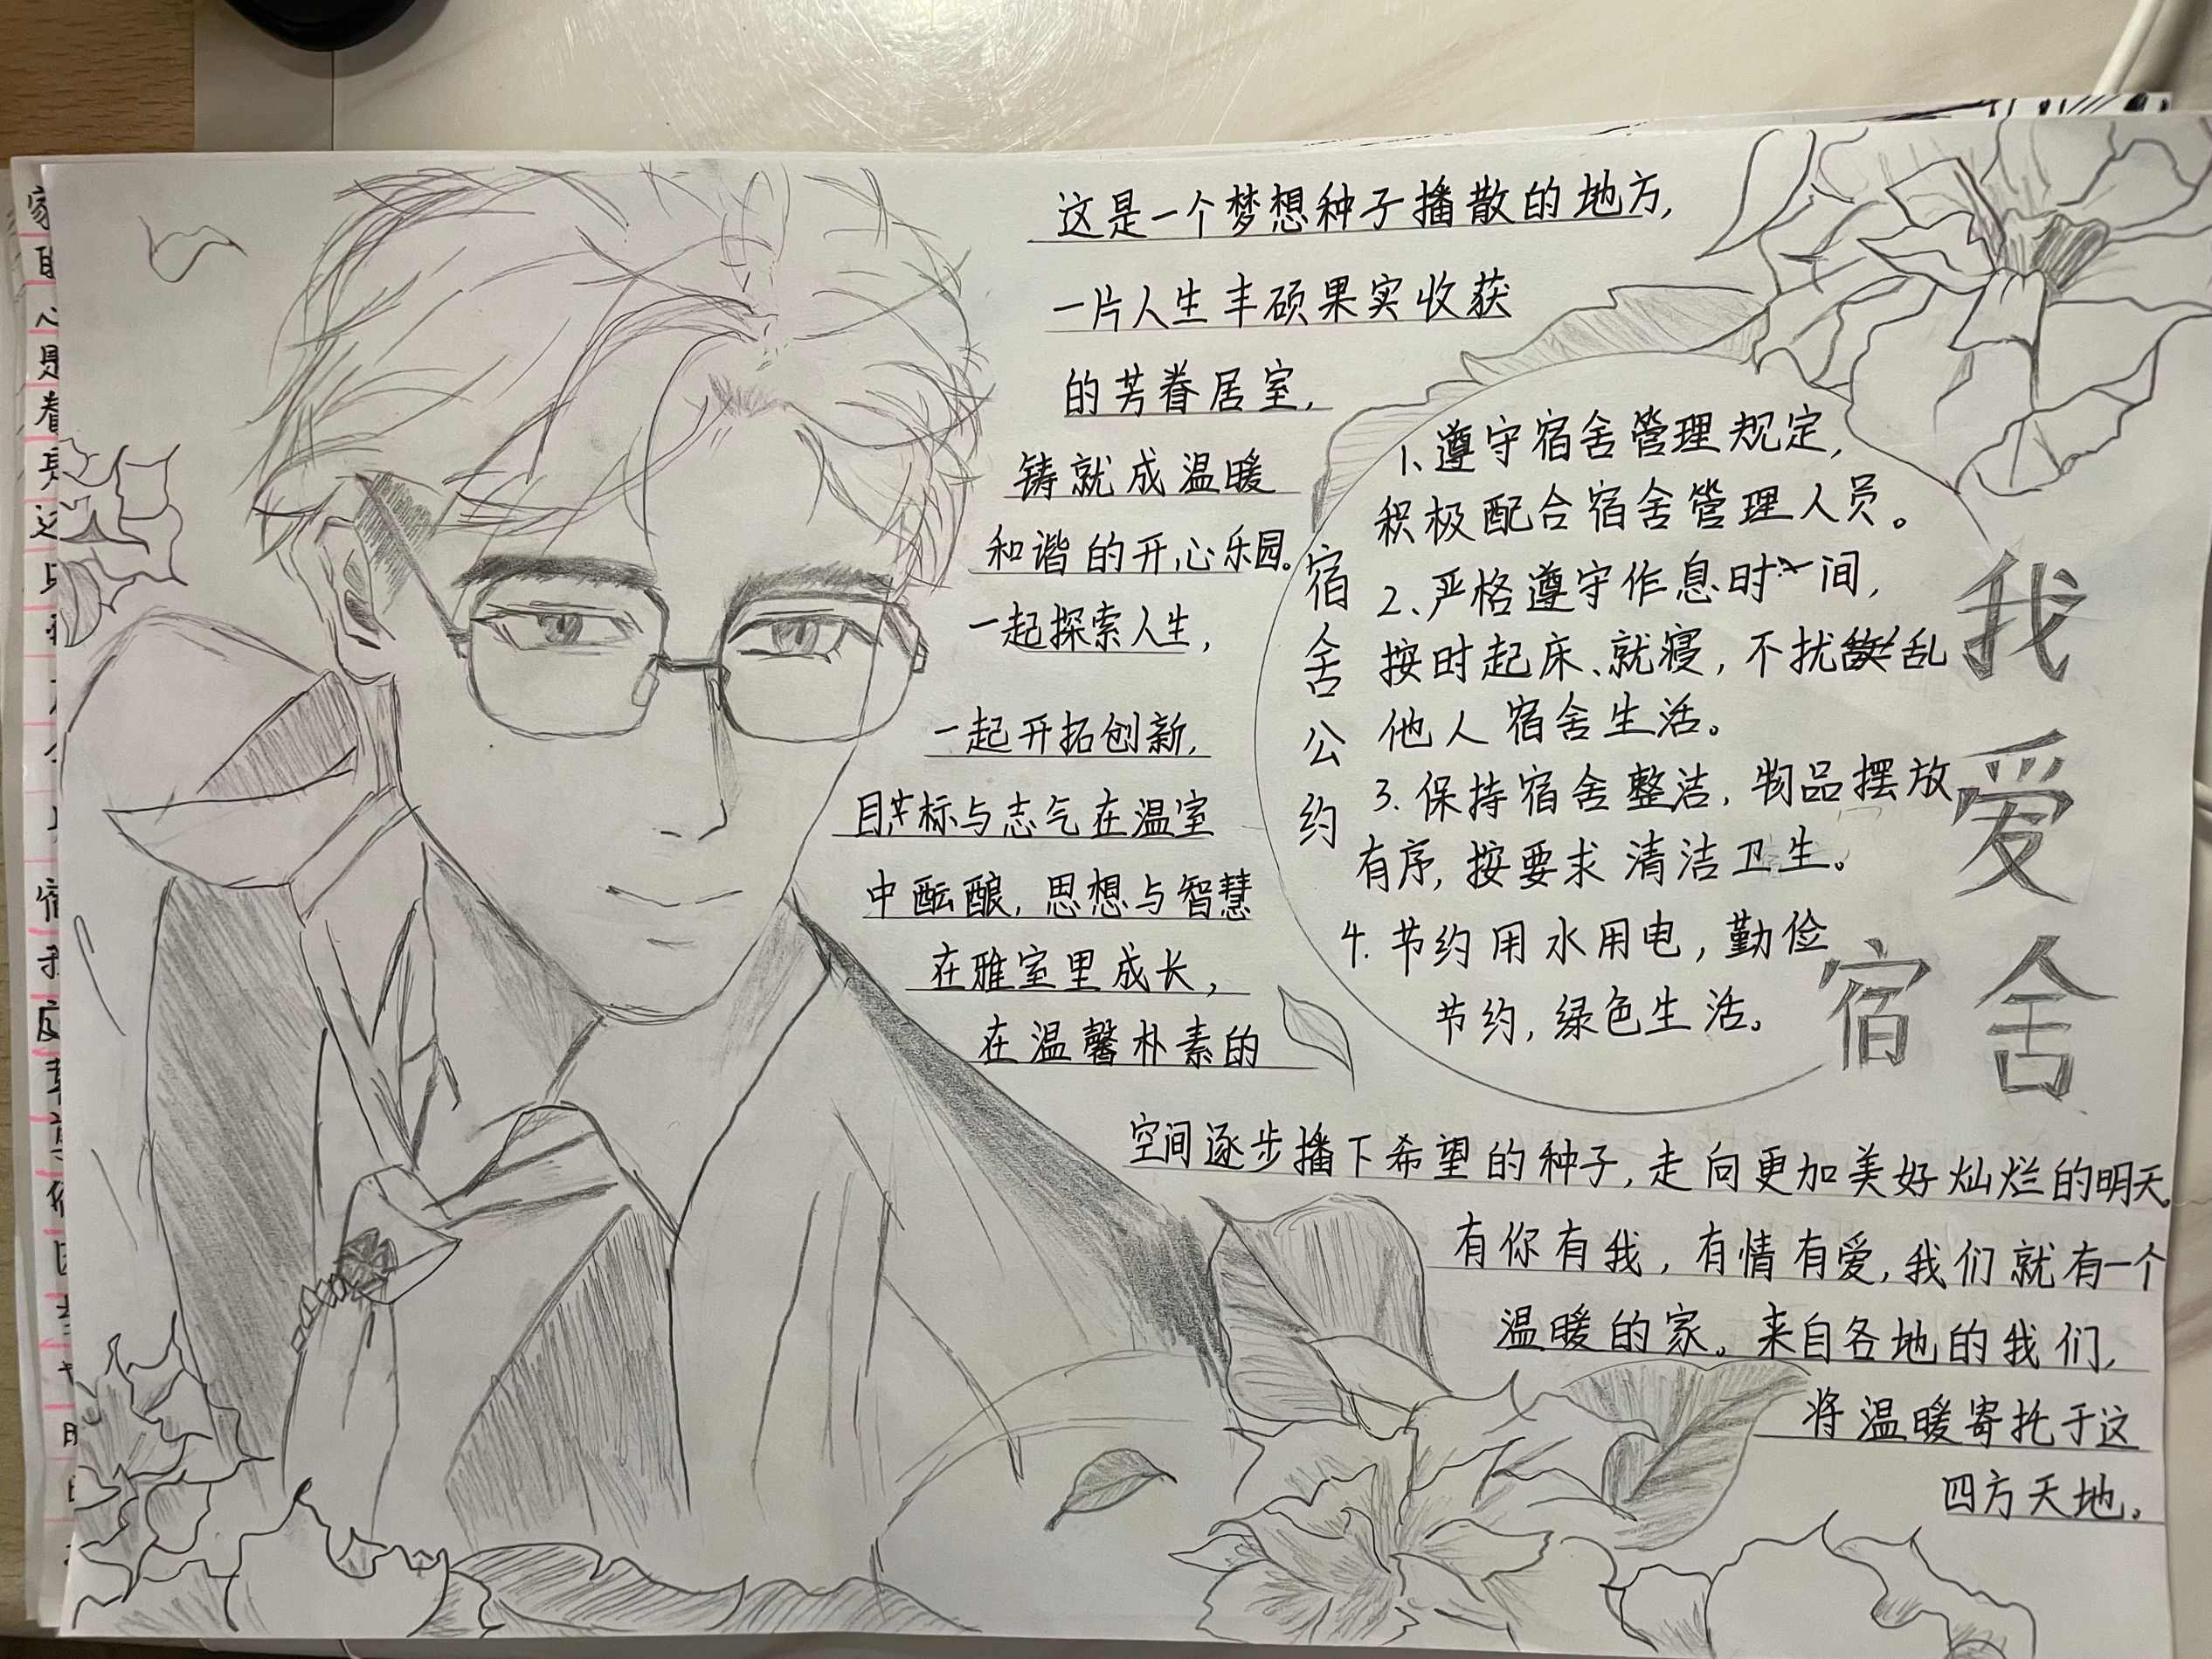 这是一个梦想种子播散的地方,
一片人生丰硕果实收获
的芳眷居室,
铸就成温暖
和谐的开心乐园。
一起探索人生,
一起开拓创新,
目标与志气在温室
中酝酿,思想与智慧
在雅室里成长,
在温馨朴素的
空间逐步播下希望的种子,走向更加美好灿烂的明天。
有你有我,有情有爱,我们就有一个
温暖的家。来自各地的我们,
将温暖寄托于这
四方天地。
宿舍公约
1、遵守宿舍管理规定,
积极配合宿舍管理人员。
2、严格遵守作息时间,
按时起床、就寝,不扰乱
他人宿舍生活。
3.保持宿舍整洁,物品摆放
有序,按要求清洁卫生。
4.节约用水用电,勤俭
节约,绿色生活。
我爱宿舍